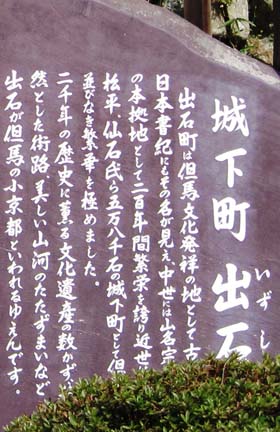 城下町 出石
いずし
出石町は但馬文化発祥の地として古
日本書紀にもその名が見え、中世には山名宗
の本拠地として二百年間繁栄を誇り近世は
松平、仙石氏ら五万八千石の城下町として但
並びなき繁華を極めました。
二千年の歴史に薫る文化遺産の数かず
然とした街路、美しい山河のたたずまいなど
出石が但馬の小京都といわれるゆえんです。